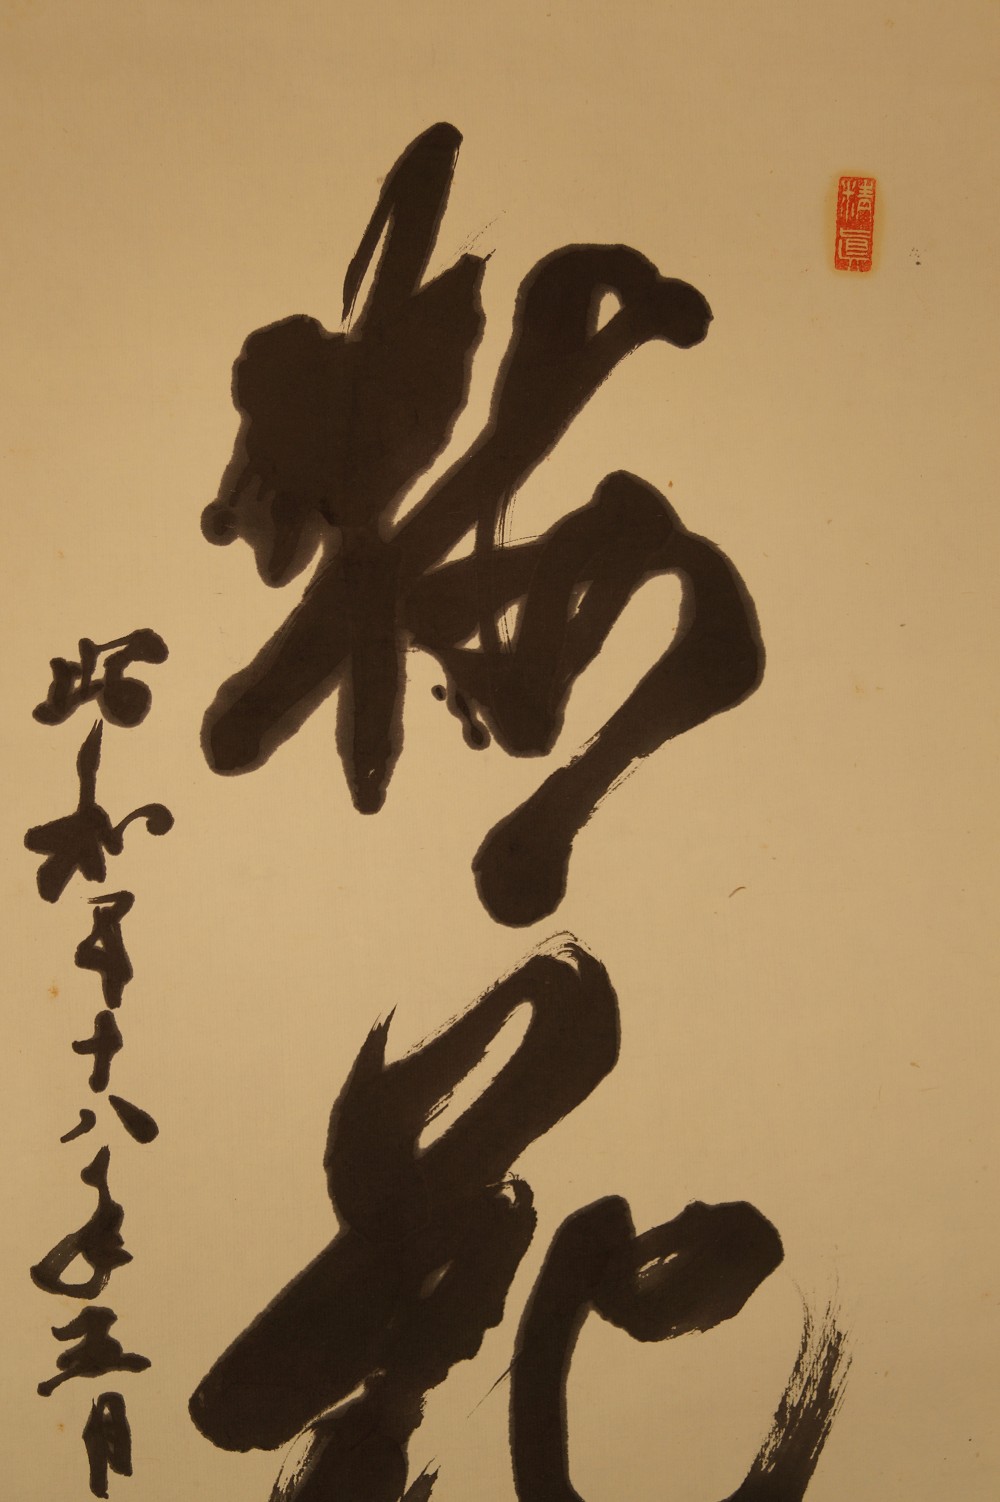 精眞
梅花
昭和十八年五月